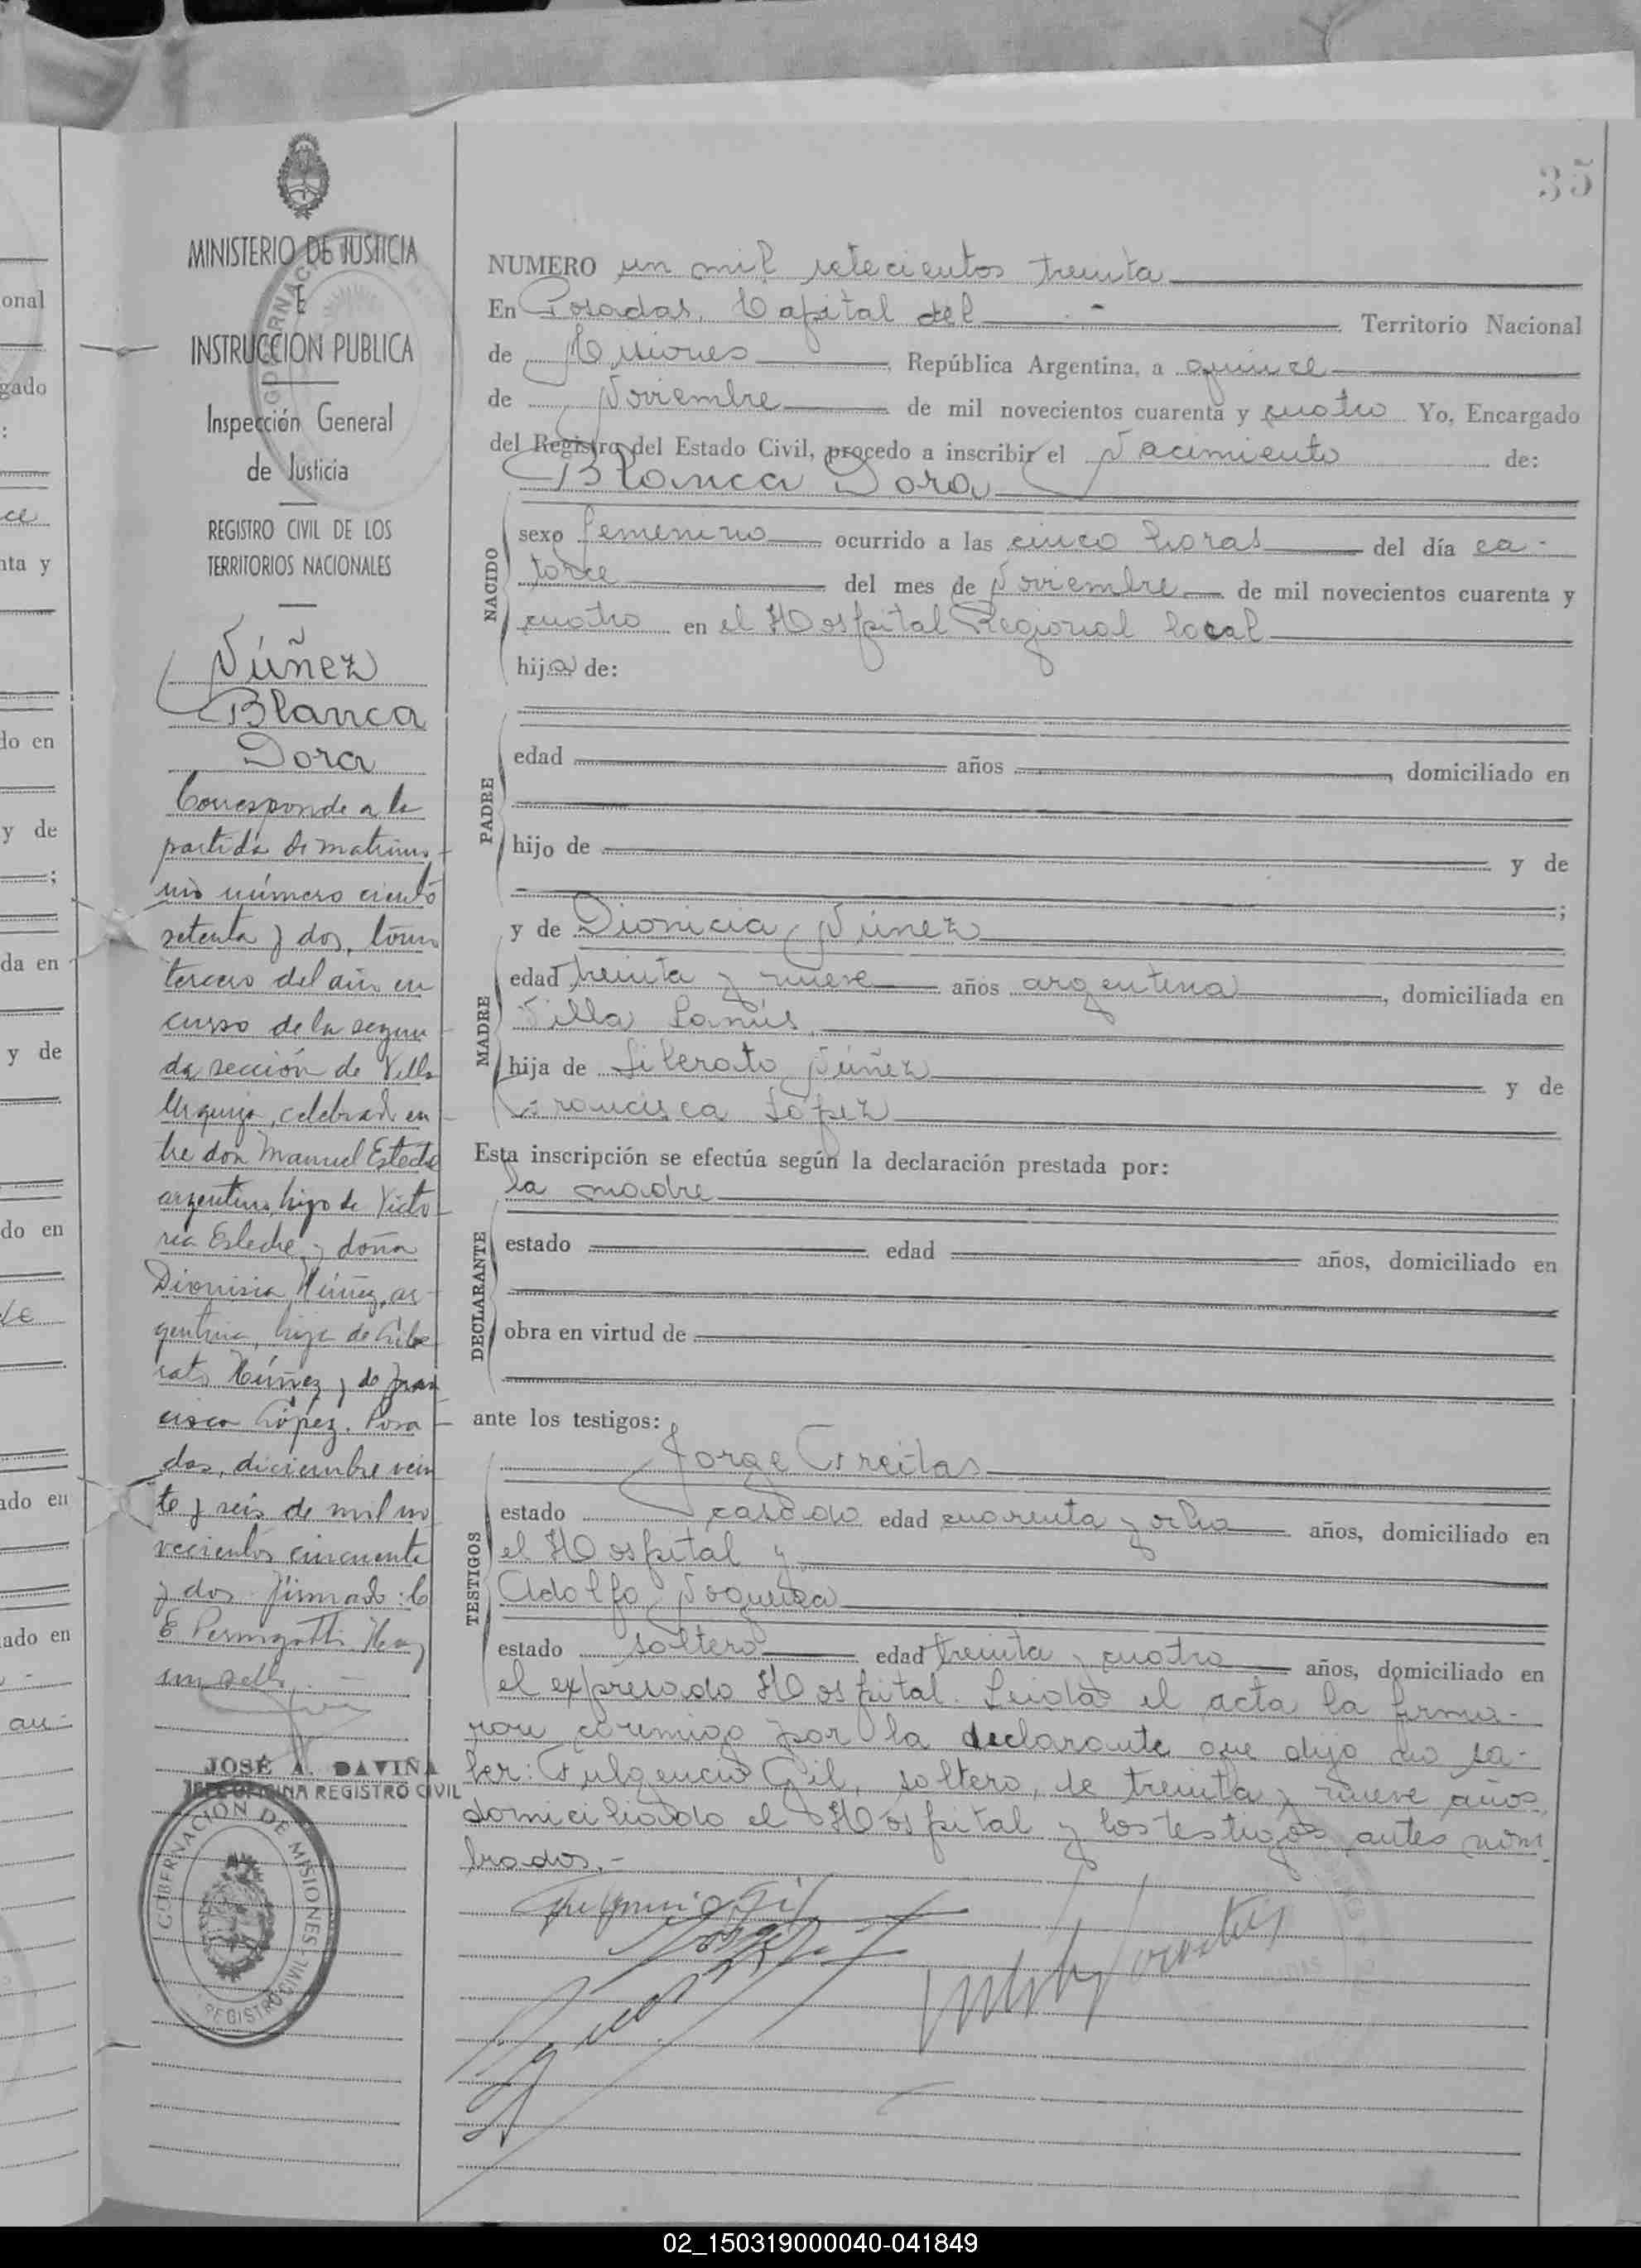 35
MINISTERIO DE JUSTICIA
E
INSTRUCCION PUBLICA
Inspección General
de Justicia
REGISTRO CIVIL DE LOS
TERRITORIOS NACIONALES
Núñez
Blanca
Dora
Corresponde a la
partida de matrimo-
nio número ciento
setenta y dos, tomo
tercero del año en
curso de la segun-
da sección de Villa
Urquiza, celebrado en-
tre don Manuel Esteche
argentino, hijo de Victo-
ria Esteche y doña
Dionisia Núñez, ar-
gentina, hija de Libe-
rato Núñez y de Fran-
cisca López. Posa-
das, diciembre vein-
te y seis de mil no-
vecientos cincuenta
y dos. Firmado: C
E Permigotti. Hay
un sello.
JOSÉ A. DAVIÑA
JEFE OFICINA REGISTRO CIVIL
GOBERNACIÓN DE MISIONES
REGISTRO CIVIL
NUMERO un mil setecientos treinta
En Posadas, Capital del Territorio Nacional
de Misiones, República Argentina, a quince
de Noviembre de mil novecientos cuarenta y cuatro Yo, Encargado
del Registro del Estado Civil, procedo a inscribir el Nacimiento de:
Blanca Dora
NACIDO
sexo femenino ocurrido a las cinco horas del día ca-
torce del mes de Noviembre de mil novecientos cuarenta y
cuatro en el Hospital Regional local
hija de:
PADRE
edad años , domiciliado en
hijo de y de
;
MADRE
y de Dionicia Núnez
edad treinta y nueve años argentina, domiciliada en
Villa Lanús
hija de Liberato Núñez y de
Francisca López
Esta inscripción se efectúa según la declaración prestada por:
la madre
DECLARANTE
estado edad años, domiciliado en
obra en virtud de
ante los testigos:
TESTIGOS
Jorge Freitas
estado casado edad cuarenta y ocho años, domiciliado en
el Hospital y
Adolfo Noguera
estado soltero edad treinta y cuatro años, domiciliado en
el expresado Hospital. Leida el acta la firma-
ron conmigo por la declarante que dijo no sa-
ber: Fulgencio Gil, soltero, de treinta y nueve años
domiciliado el Hospital y los testigos antes nom
brados.-
Fulgencio Gil
02_150319000040-041849